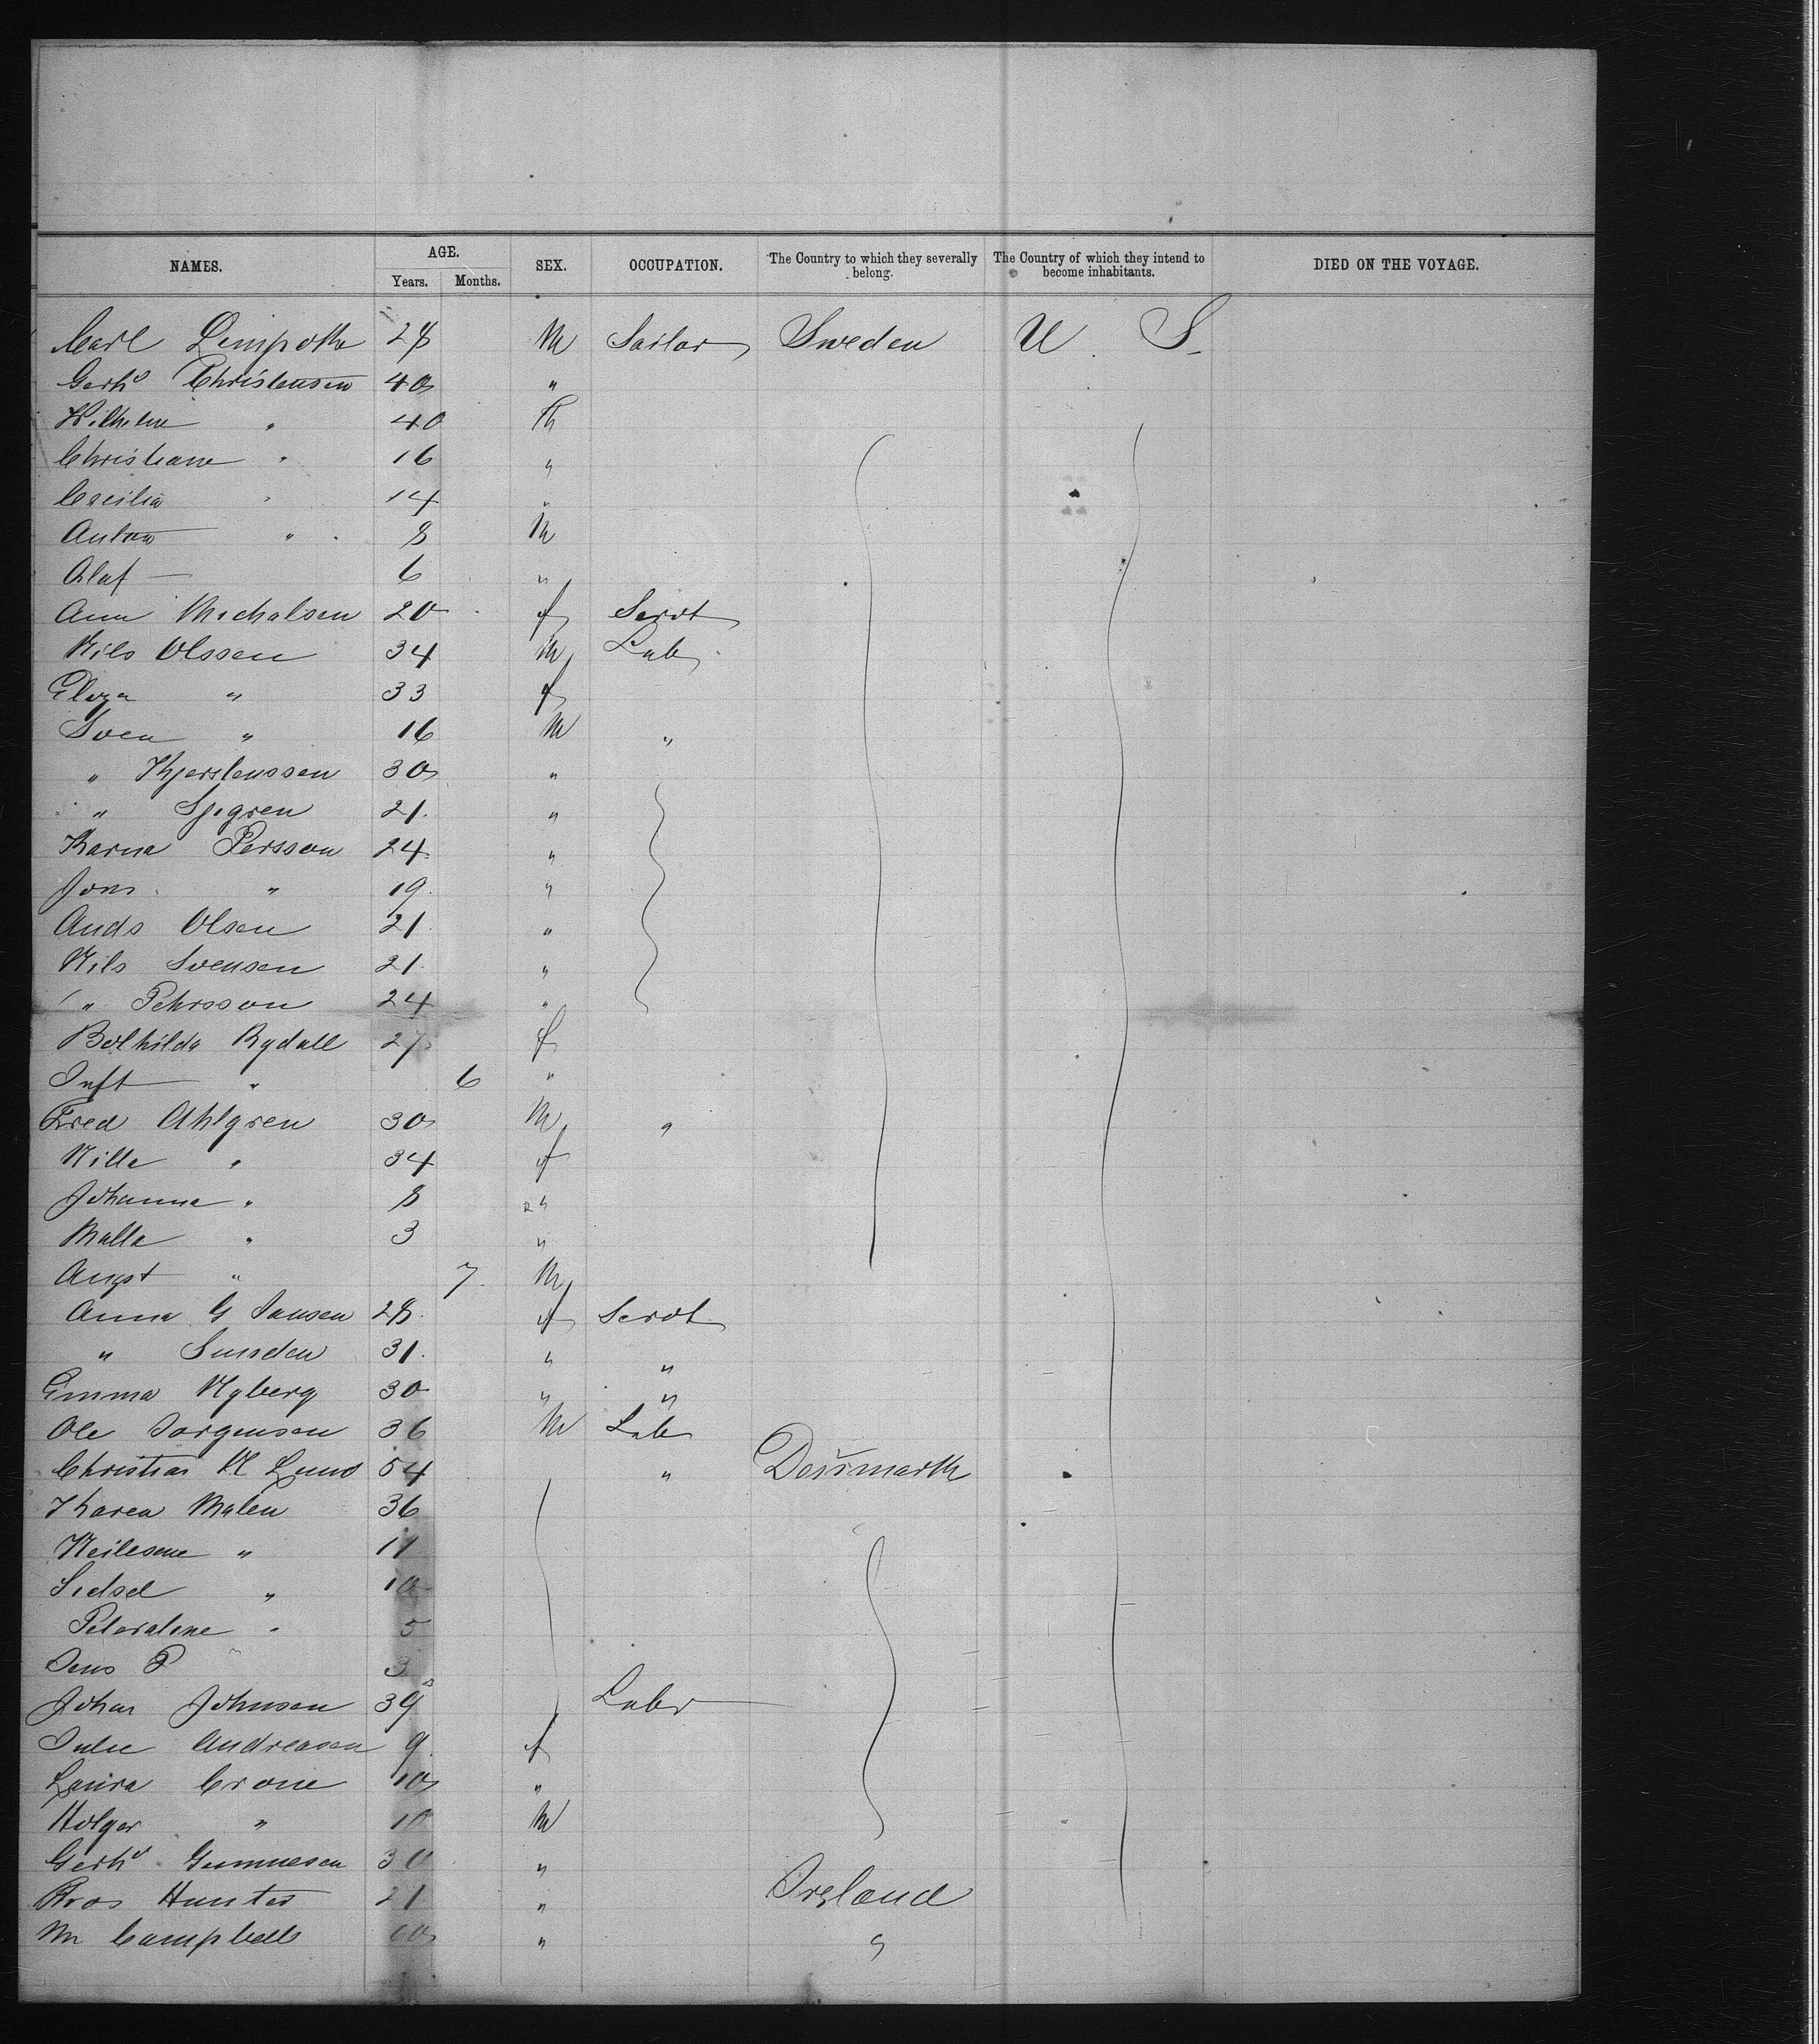 NAMES. AGE. Years. Months. SEX. OCCUPATION. The Country to which they severally belong. The Country of which they intend to become inhabitants. DIED ON THE VOYAGE.
Carl 28 M Sailor Sweden U. S.
Gerhd Christensen 40 "
Wilhelm " 40
Christiane " 16 "
Cecilia " 14 "
Anton " 8 M
Olaf — 6 "
Ann Michalsen 20 f Servt
Nils Olssen 34 M Lab
" 33 f
Sven " 16 M "
" 30 "
" Sjogren 21 "
Karna Persson 24 "
Jons " 19 "
Ands Olsen 21 "
Nils Svensen 21 "
" Pehrsson 24 "
Bothilda Rydall 27 f
Inft " 6 "
Fred Ahlgren 30 M "
Nilla " 34 f
Johanna " 8 "
Malla " 3 "
Augst " 7 M
Anna G Jansen 28 f Servt
" Sunden 31 " "
Emma Nyberg 30 " "
Ole Jorgensen 36 M Lab
Christian N Lund 54 " Denmark
Karen Malen 36
" 11
Sidsel " 10
Peteraline " 5
Jens P " 3
Johan Johnsen 39 Labr
Julie Andreasen 9 f
Laura Crone 10 "
Holger " 10 M
Gerhd 30 "
Hunter 21 " Ireland
Wm Campbell 60 " "